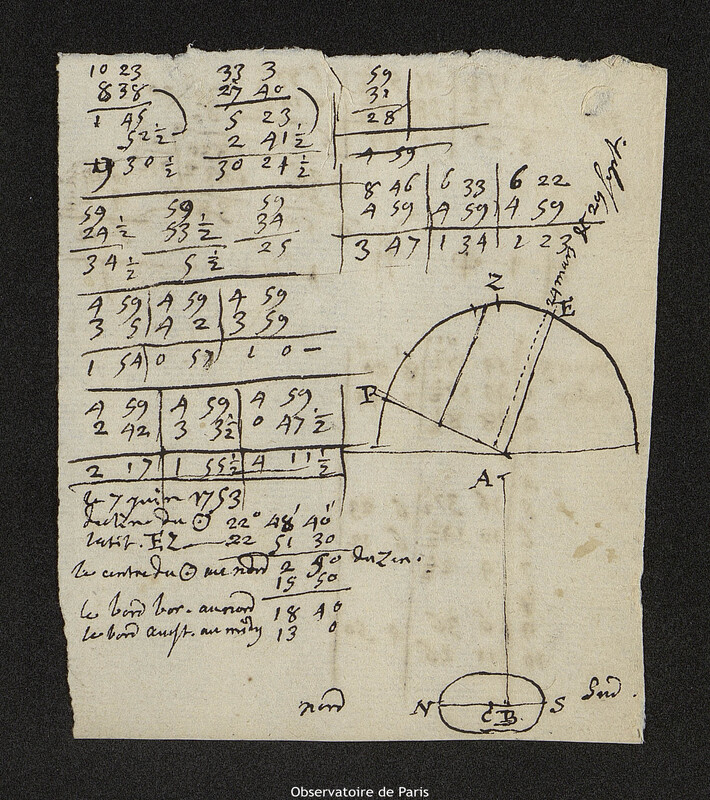 10 23
8 38
1 45
52 1/2
30 1/2
33 3
27 40
5 23
2 41 1/2
30 21 1/2
59
31
28
4 59
8 46 | 6 33 | 6 22
4 59 | 4 59 | 4 59
3 47 | 1 34 | 1 23
59
24 1/2
34 1/2
59
53 1/2
5 1/2
59
34
25
4 59 | 4 59 | 4 59
3 5 | 4 2 | 3 59
1 54 | 0 57 | 1 0
4 59 | 4 59 | 4 59
2 42 | 3 3 1/2 | 0 47 1/2
2 17 | 1 55 1/2 | 4 11 1/2
le 7 juin 1753
declin. du ☉ 22° 48' 40"
latit. EZ 22 51 30
le centre du ☉ au nord 2 50 du Zen.
15 50
le bord bor. au nord 18 40
le bord aust. au midy 13 0
24 mars
et 29 sept.
Z
E
P
A
nord
N
C B
S
Sud.
Observatoire de Paris